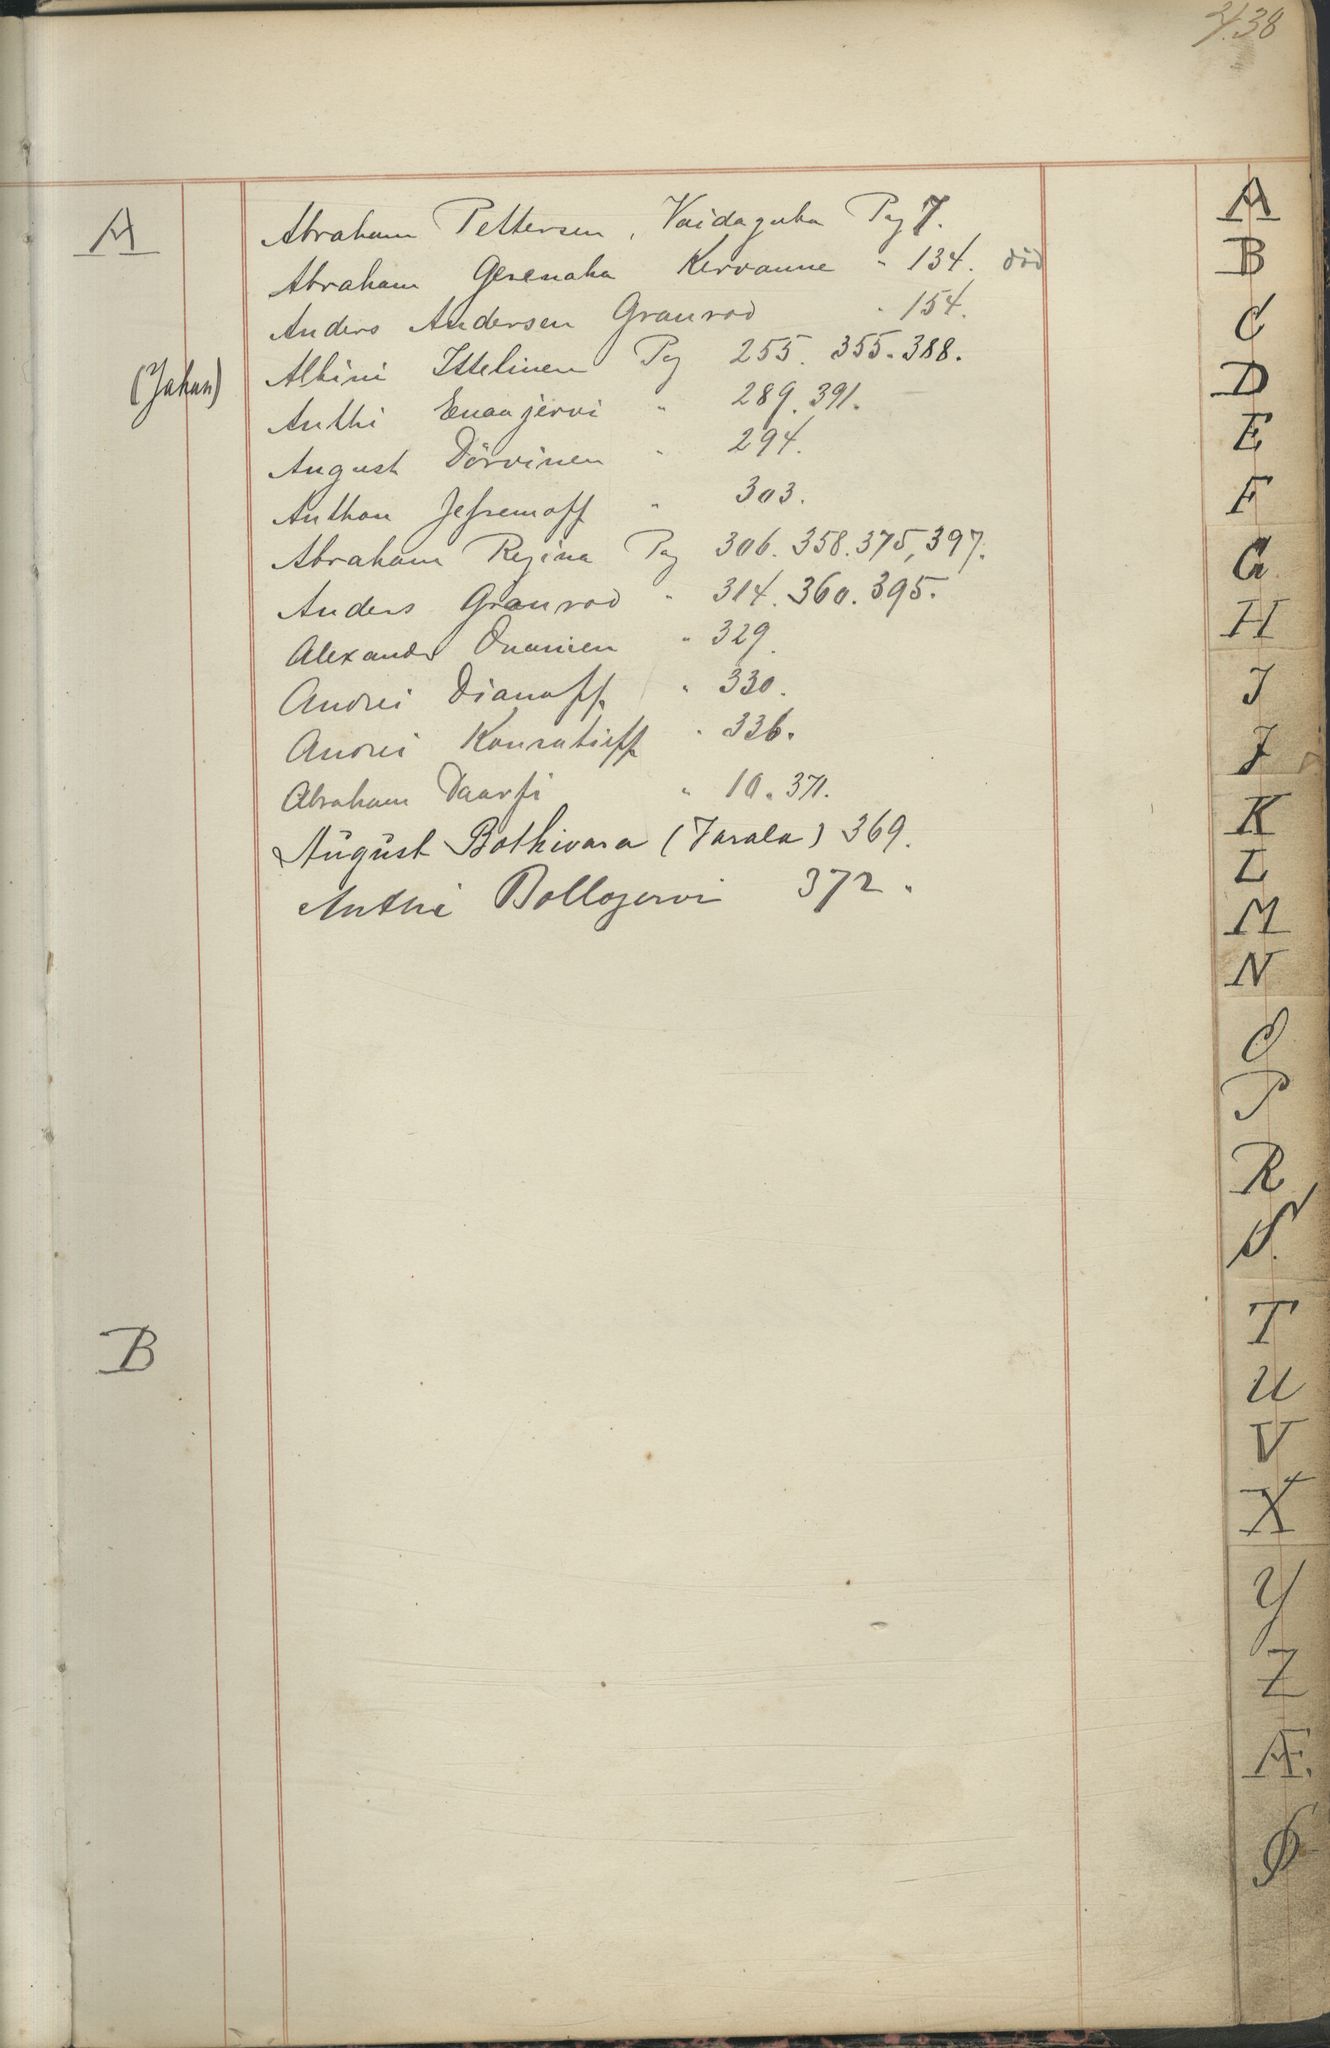 438
A
Abraham Pettersen, Vaidaguba Pag 7.
Abraham Gerenaha Kervanne " 134. död
Anders Andersen Granrod " 154.
Albini Ittelinen Pag 255. 355. 388.
(Johan)
Anthi Enaajervi " 289. 391.
August Dörvinen " 294.
Anthon Jefremoff " 303.
Abraham Regina Pag 306. 358. 375, 397.
Anders Granrod " 314. 360. 395.
Alexander Onanien " 329.
Andrei Dianoff " 330.
Andrei Konratieff " 336.
Abraham Daarfi " 10. 371.
August Bothivara (Varala) 369.
Anthi Bollojervi 372.
B
A
B
C
D
E
F
G
H
I
J
K
L
M
N
O
P
R
S.
T
U
V
X
Y
Z
Æ.
Ø